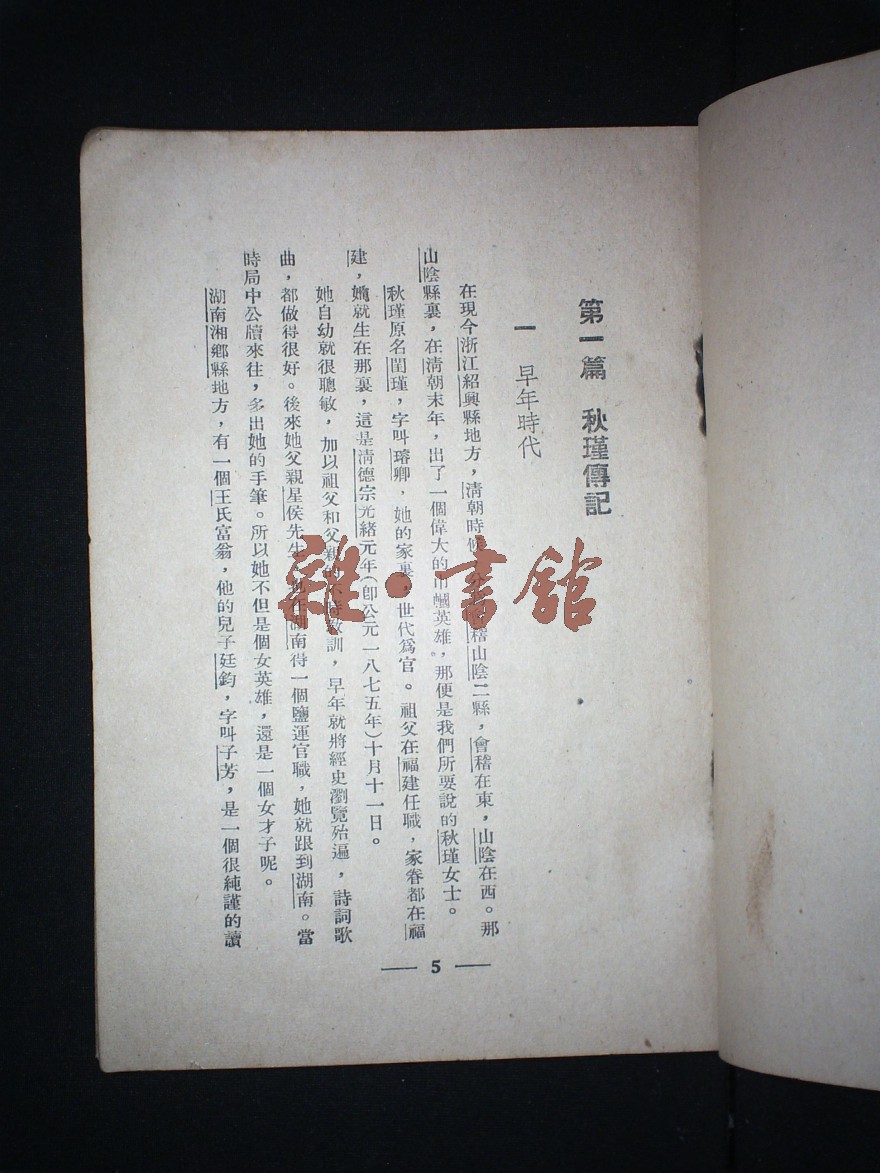 第一篇 秋瑾傳記
一 早年時代
在現今浙江紹興縣地方，清朝時候 稽山陰二縣，會稽在東，山陰在西。那
山陰縣裏，在清朝末年，出了一個偉大的巾幗英雄，那便是我們所要說的秋瑾女士。
秋瑾原名閨瑾，字叫璿卿，她的家裏，世代爲官。祖父在福建任職，家眷都在福
建，她就生在那裏，這是清德宗光緒元年(即公元一八七五年)十月十一日。
她自幼就很聰敏，加以祖父和父親的 時教訓，早年就將經史瀏覽殆遍，詩詞歌
曲，都做得很好。後來她父親星侯先生 在湖南得一個鹽運官職，她就跟到湖南。當
時局中公牘來往，多出她的手筆。所以她不但是個女英雄，還是一個女才子呢。
湖南湘鄉縣地方，有一個王氏富翁，他的兒子廷鈞，字叫子芳，是一個很純謹的讀
— 5 —
雜·書館